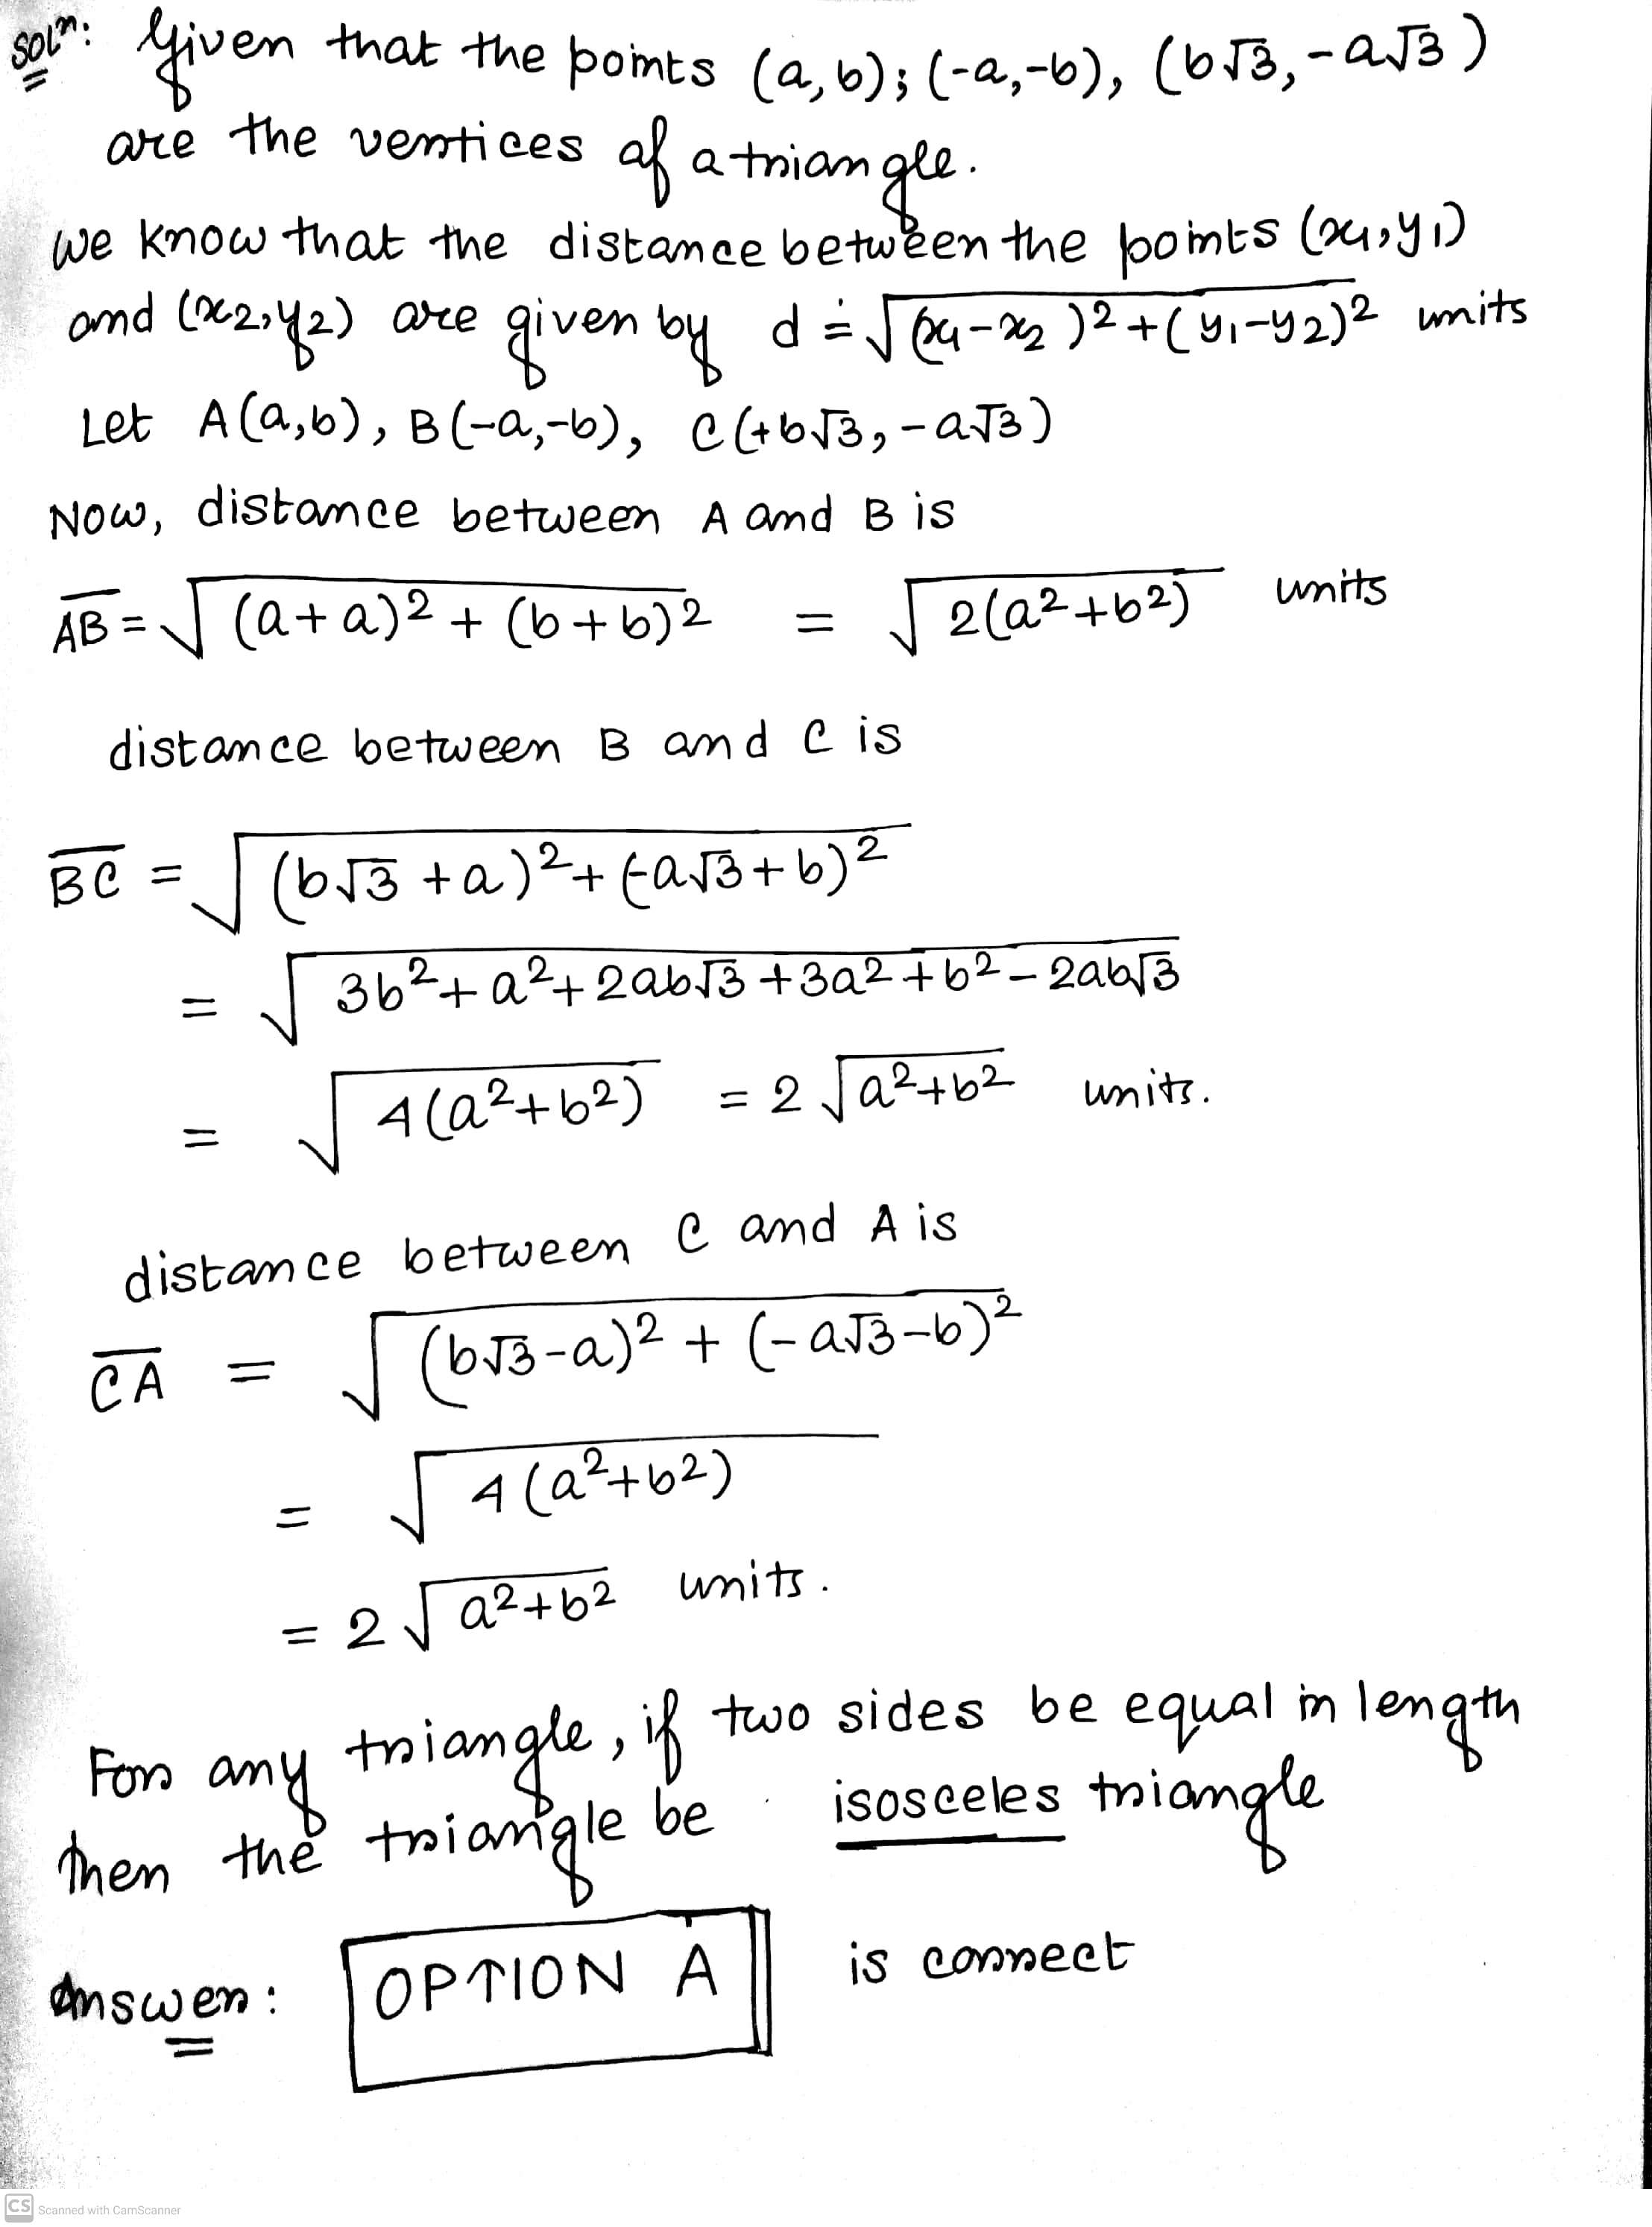 Solⁿ: Given that the points (a,b); (-a,-b), (b√3, -a√3)
are the vertices of a triangle.
We know that the distance between the points (x₁,y₁)
and (x₂,y₂) are given by d = √(x₁-x₂)² + (y₁-y₂)² units
Let A(a,b), B(-a,-b), C(+b√3, -a√3)
Now, distance between A and B is
AB = √(a+a)² + (b+b)² = √2(a²+b²) units
distance between B and C is
BC = √(b√3 +a)² + (-a√3+b)²
= √3b²+a²+2ab√3+3a²+b²-2ab√3
= √4(a²+b²) = 2√a²+b² units.
distance between C and A is
CA = √(b√3-a)² + (-a√3-b)²
= √4(a²+b²)
= 2√a²+b² units.
For any triangle, if two sides be equal in length
then the triangle be isosceles triangle
Answer: OPTION A is correct
CS Scanned with CamScanner